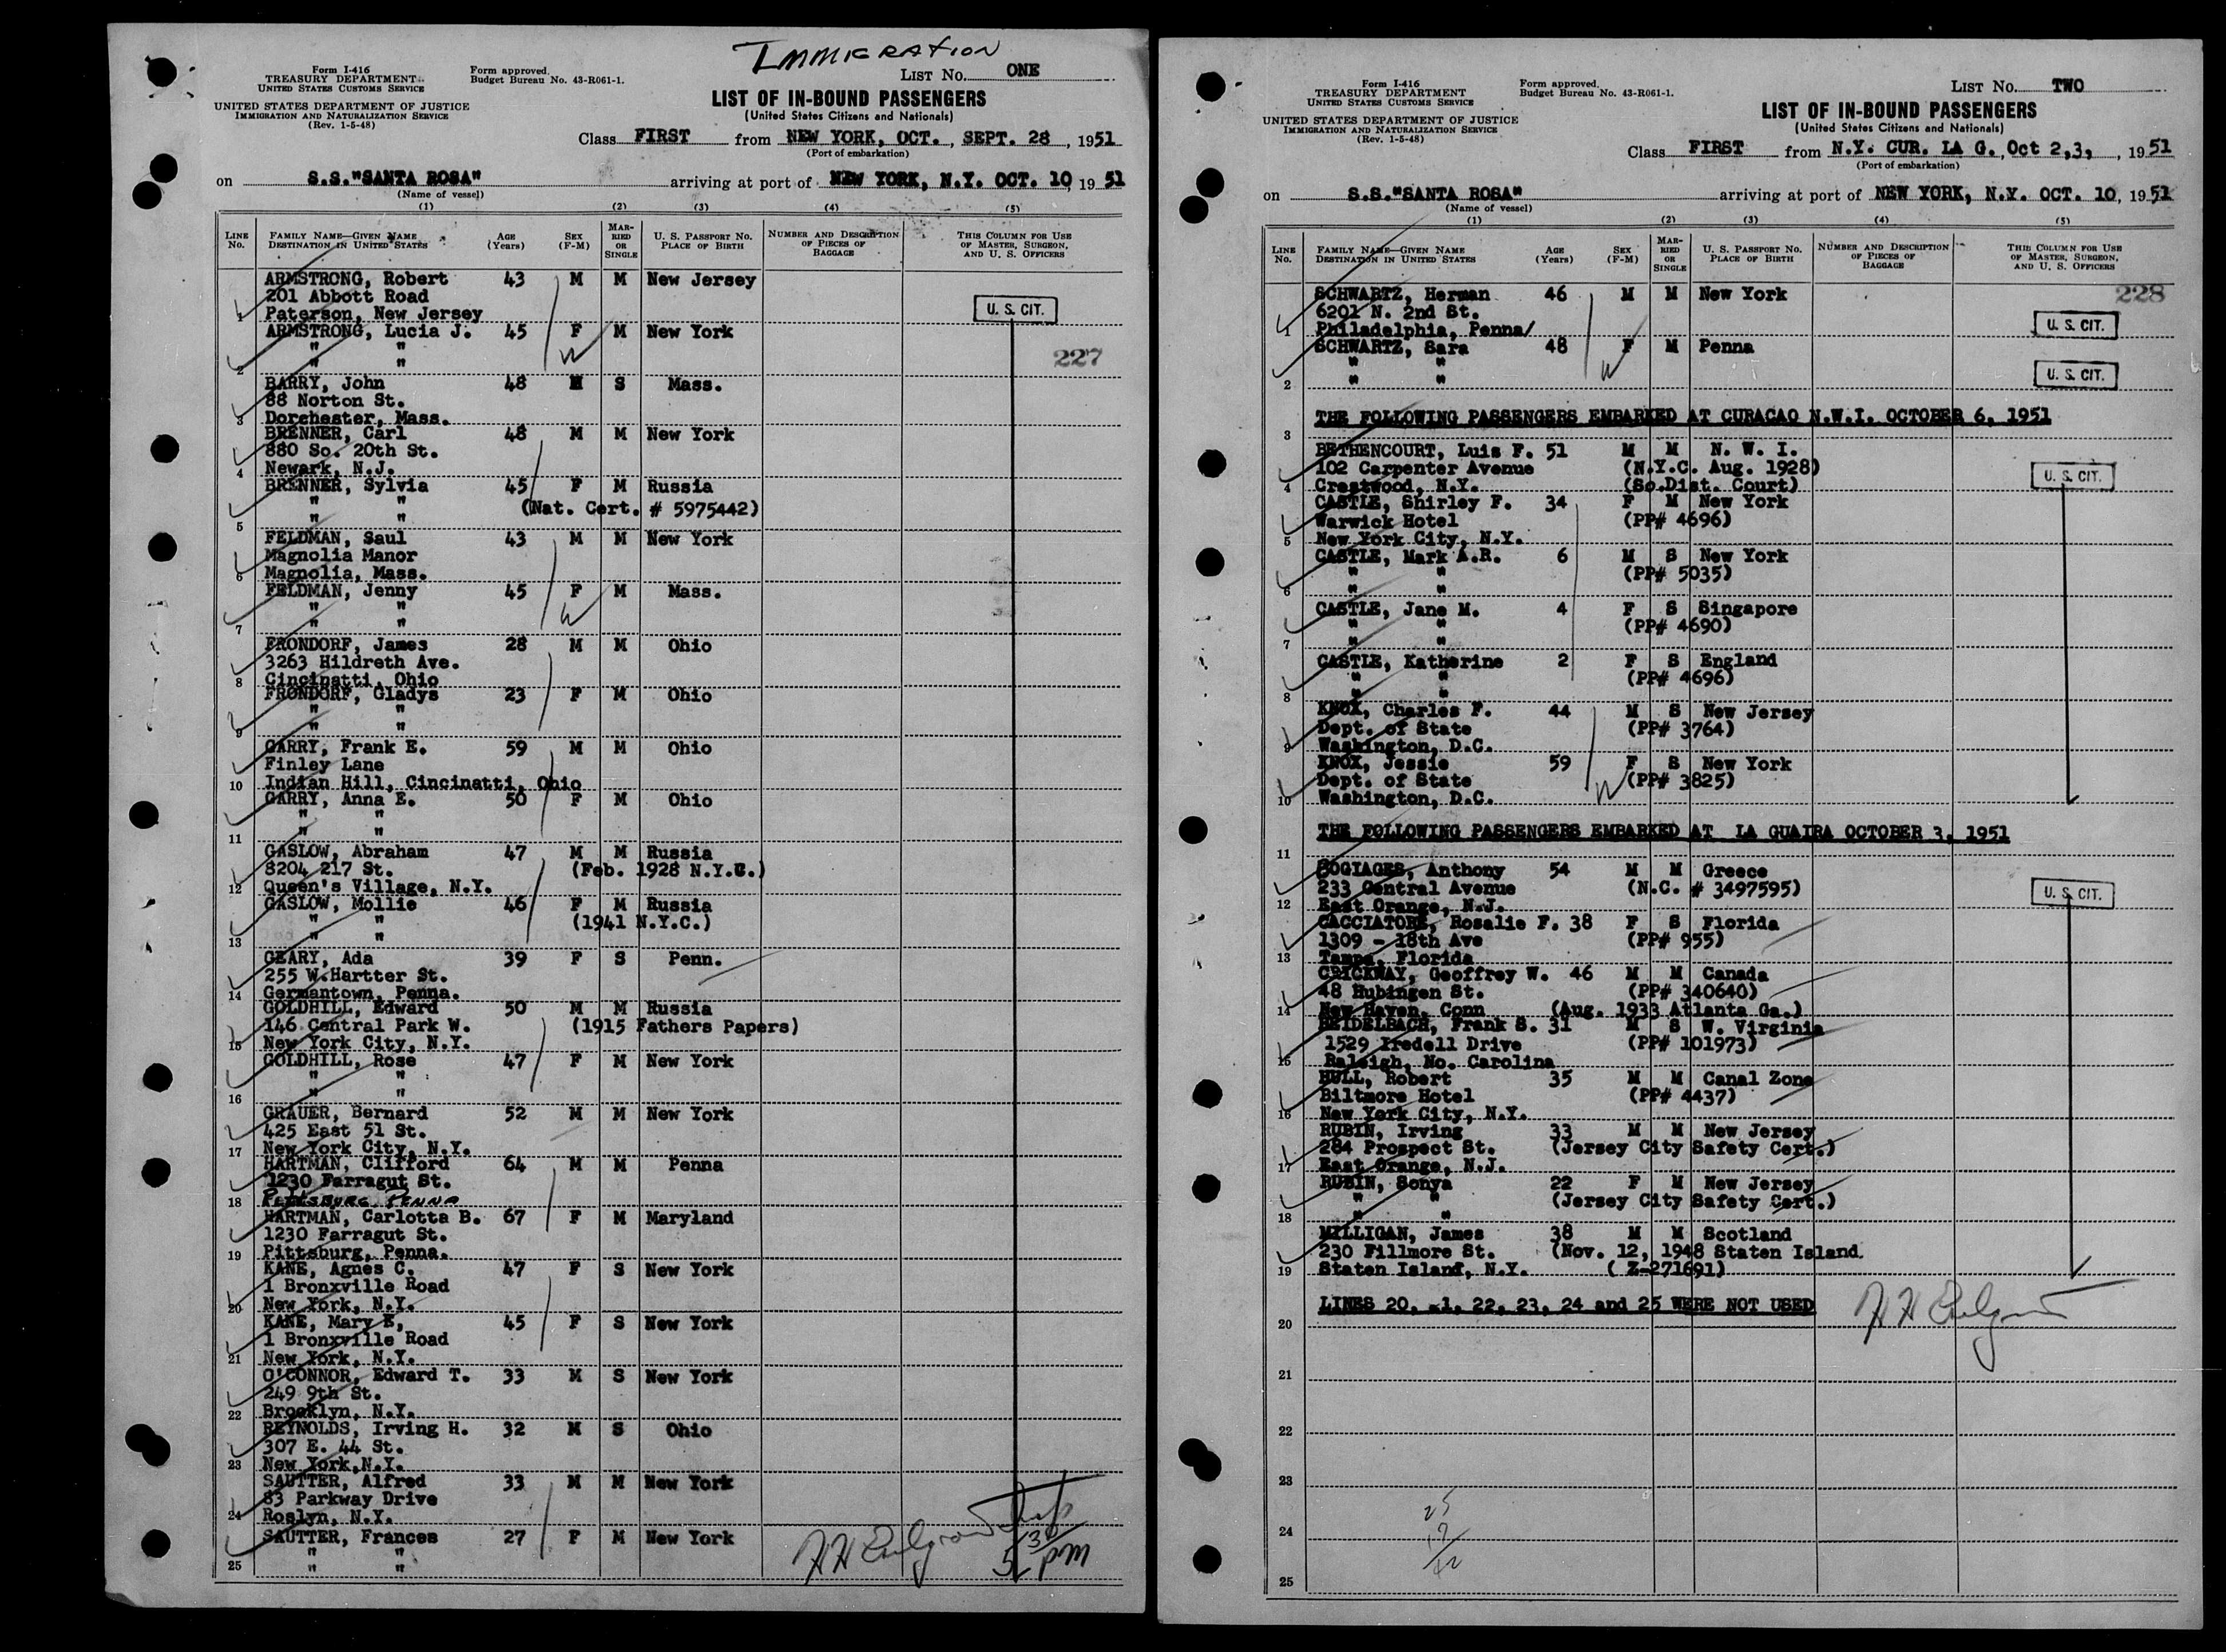 IMMIGRATION
Form I-416
TREASURY DEPARTMENT
UNITED STATES CUSTOMS SERVICE
Form approved.
Budget Bureau No. 43-R061-1.
LIST NO. ONE
UNITED STATES DEPARTMENT OF JUSTICE
IMMIGRATION AND NATURALIZATION SERVICE
(Rev. 1-5-48)
LIST OF IN-BOUND PASSENGERS
(United States Citizens and Nationals)
Class FIRST from NEW YORK, OCT., SEPT. 28, 1951
(Port of embarkation)
on S.S."SANTA ROSA" arriving at port of NEW YORK, N.Y. OCT. 10, 1951
(Name of vessel)
(1) (2) (3) (4) (5)
LINE No. FAMILY NAME—GIVEN NAME DESTINATION IN UNITED STATES AGE (Years) SEX (F-M) MARRIED OR SINGLE U. S. PASSPORT NO. PLACE OF BIRTH NUMBER AND DESCRIPTION OF PIECES OF BAGGAGE THIS COLUMN FOR USE OF MASTER, SURGEON, AND U. S. OFFICERS
ARMSTRONG, Robert 43 M M New Jersey
201 Abbott Road
1 Paterson, New Jersey U. S. CIT.
ARMSTRONG, Lucia J. 45 F M New York
" "
2 " " 227
BARRY, John 48 M S Mass.
88 Norton St.
3 Dorchester, Mass.
BRENNER, Carl 48 M M New York
880 So. 20th St.
4 Newark, N.J.
BRENNER, Sylvia 45 F M Russia
" " (Nat. Cert. # 5975442)
5 " "
FELDMAN, Saul 43 M M New York
Magnolia Manor
6 Magnolia, Mass.
FELDMAN, Jenny 45 F M Mass.
" "
7 " "
FRONDORF, James 28 M M Ohio
3263 Hildreth Ave.
8 Cincinatti, Ohio
FRONDORF, Gladys 23 F M Ohio
" "
9
GARRY, Frank E. 59 M M Ohio
Finley Lane
10 Indian Hill, Cincinatti, Ohio
GARRY, Anna E. 50 F M Ohio
" "
11 " "
GASLOW, Abraham 47 M M Russia
8204 217 St. (Feb. 1928 N.Y.C.)
12 Queen's Village, N.Y.
GASLOW, Mollie 46 F M Russia
" " (1941 N.Y.C.)
13 " "
GEARY, Ada 39 F S Penn.
255 W.Hartter St.
14 Germantown, Penna.
GOLDHILL, Edward 50 M M Russia
146 Central Park W. (1915 Fathers Papers)
15 New York City, N.Y.
GOLDHILL, Rose 47 F M New York
" "
16 " "
GRAUER, Bernard 52 M M New York
425 East 51 St.
17 New York City, N.Y.
HARTMAN, Clifford 64 M M Penna
1230 Farragut St.
18 PITTSBURG, PENNA
HARTMAN, Carlotta B. 67 F M Maryland
1230 Farragut St.
19 Pittsburg, Penna.
KANE, Agnes C. 47 F S New York
1 Bronxville Road
20 New York, N.Y.
KANE, Mary E, 45 F S New York
1 Bronxville Road
21 New York, N.Y.
O'CONNOR, Edward T. 33 M S New York
249 9th St.
22 Brooklyn, N.Y.
REYNOLDS, Irving H. 32 M S Ohio
307 E. 44 St.
23 New York,N.Y.
SAUTTER, Alfred 33 M M New York
83 Parkway Drive
24 Roslyn, N.Y.
SAUTTER, Frances 27 F M New York
" "
25 " " 5 30 pm
Form I-416
TREASURY DEPARTMENT
UNITED STATES CUSTOMS SERVICE
Form approved.
Budget Bureau No. 43-R061-1.
LIST NO. TWO
UNITED STATES DEPARTMENT OF JUSTICE
IMMIGRATION AND NATURALIZATION SERVICE
(Rev. 1-5-48)
LIST OF IN-BOUND PASSENGERS
(United States Citizens and Nationals)
Class FIRST from N.Y. CUR. LA G., Oct 2,3,, 1951
(Port of embarkation)
on S.S."SANTA ROSA" arriving at port of NEW YORK, N.Y. OCT. 10, 1951
(Name of vessel)
(1) (2) (3) (4) (5)
LINE No. FAMILY NAME—GIVEN NAME DESTINATION IN UNITED STATES AGE (Years) SEX (F-M) MARRIED OR SINGLE U. S. PASSPORT NO. PLACE OF BIRTH NUMBER AND DESCRIPTION OF PIECES OF BAGGAGE THIS COLUMN FOR USE OF MASTER, SURGEON, AND U. S. OFFICERS
SCHWARTZ, Herman 46 M M New York 228
6201 N. 2nd St.
1 Philadelphia, Penna/ U. S. CIT.
SCHWARTZ, Sara 48 F M Penna
" "
2 " " U. S. CIT.
THE FOLLOWING PASSENGERS EMBARKED AT CURACAO N.W.I. OCTOBER 6, 1951
3
BETHENCOURT, Luis F. 51 M M N. W. I.
102 Carpenter Avenue (N.Y.C. Aug. 1928)
4 Crestwood, N.Y. (So.Dist. Court) U. S. CIT.
CASTLE, Shirley F. 34 F M New York
Warwick Hotel (PP# 4696)
5 New York City, N.Y.
CASTLE, Mark A.R. 6 M S New York
" " (PP# 5035)
6 " "
CASTLE, Jane M. 4 F S Singapore
" " (PP# 4690)
7 " "
CASTLE, Katherine 2 F S England
" " (PP# 4696)
8 " "
KNOX, Charles F. 44 M S New Jersey
Dept. of State (PP# 3764)
9 Washington, D.C.
KNOX, Jessie 59 F S New York
Dept. of State (PP# 3825)
10 Washington, D.C.
THE FOLLOWING PASSENGERS EMBARKED AT LA GUAIRA OCTOBER 3, 1951
11
BOGIAGES, Anthony 54 M M Greece
233 Central Avenue (N.C. # 3497595) U. S. CIT.
12 East Orange, N.J.
CACCIATORE, Rosalie F. 38 F S Florida
1309 - 18th Ave (PP# 955)
13 Tampa, Florida
CRICKWAY, Geoffrey W. 46 M M Canada
48 Hubingen St. (PP# 340640)
14 New Haven, Conn (Aug. 1933 Atlanta Ga.)
HEIDELBACH, Frank S. 31 M S W. Virginia
1529 Iredell Drive (PP# 101973)
15 Raleigh, No. Carolina
HULL, Robert 35 M M Canal Zone
Biltmore Hotel (PP# 4437)
16 New York City, N.Y.
RUBIN, Irving 33 M M New Jersey
284 Prospect St. (Jersey City Safety Cert.)
17 East Orange, N.J.
RUBIN, Sonya 22 F M New Jersey
" " (Jersey City Safety Cert.)
18 "
MILLIGAN, James 38 M M Scotland
230 Fillmore St. (Nov. 12, 1948 Staten Island.
19 Staten Island, N.Y. ( Z-271691)
LINES 20, 21, 22, 23, 24 and 25 WERE NOT USED
20
21
22
23
25
24
25